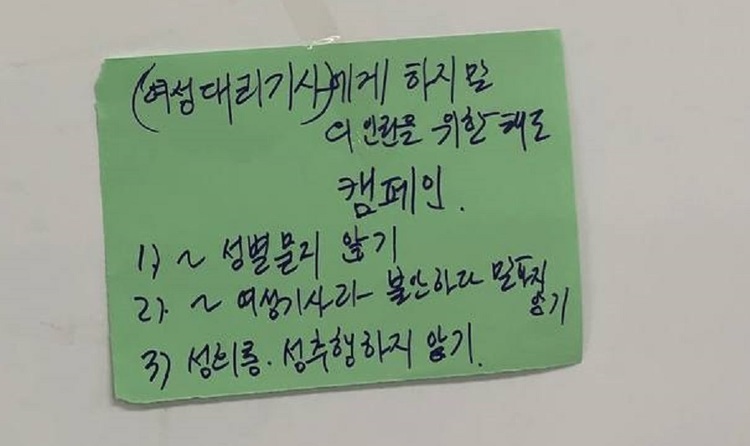 (여성대리기사)에게 하지말
의 안전을 위한 태도
캠페인.
1) ~ 성별묻지 않기
2) ~ 여성기사라 불안하다 말하지
않기
3) 성희롱. 성추행하지 않기.